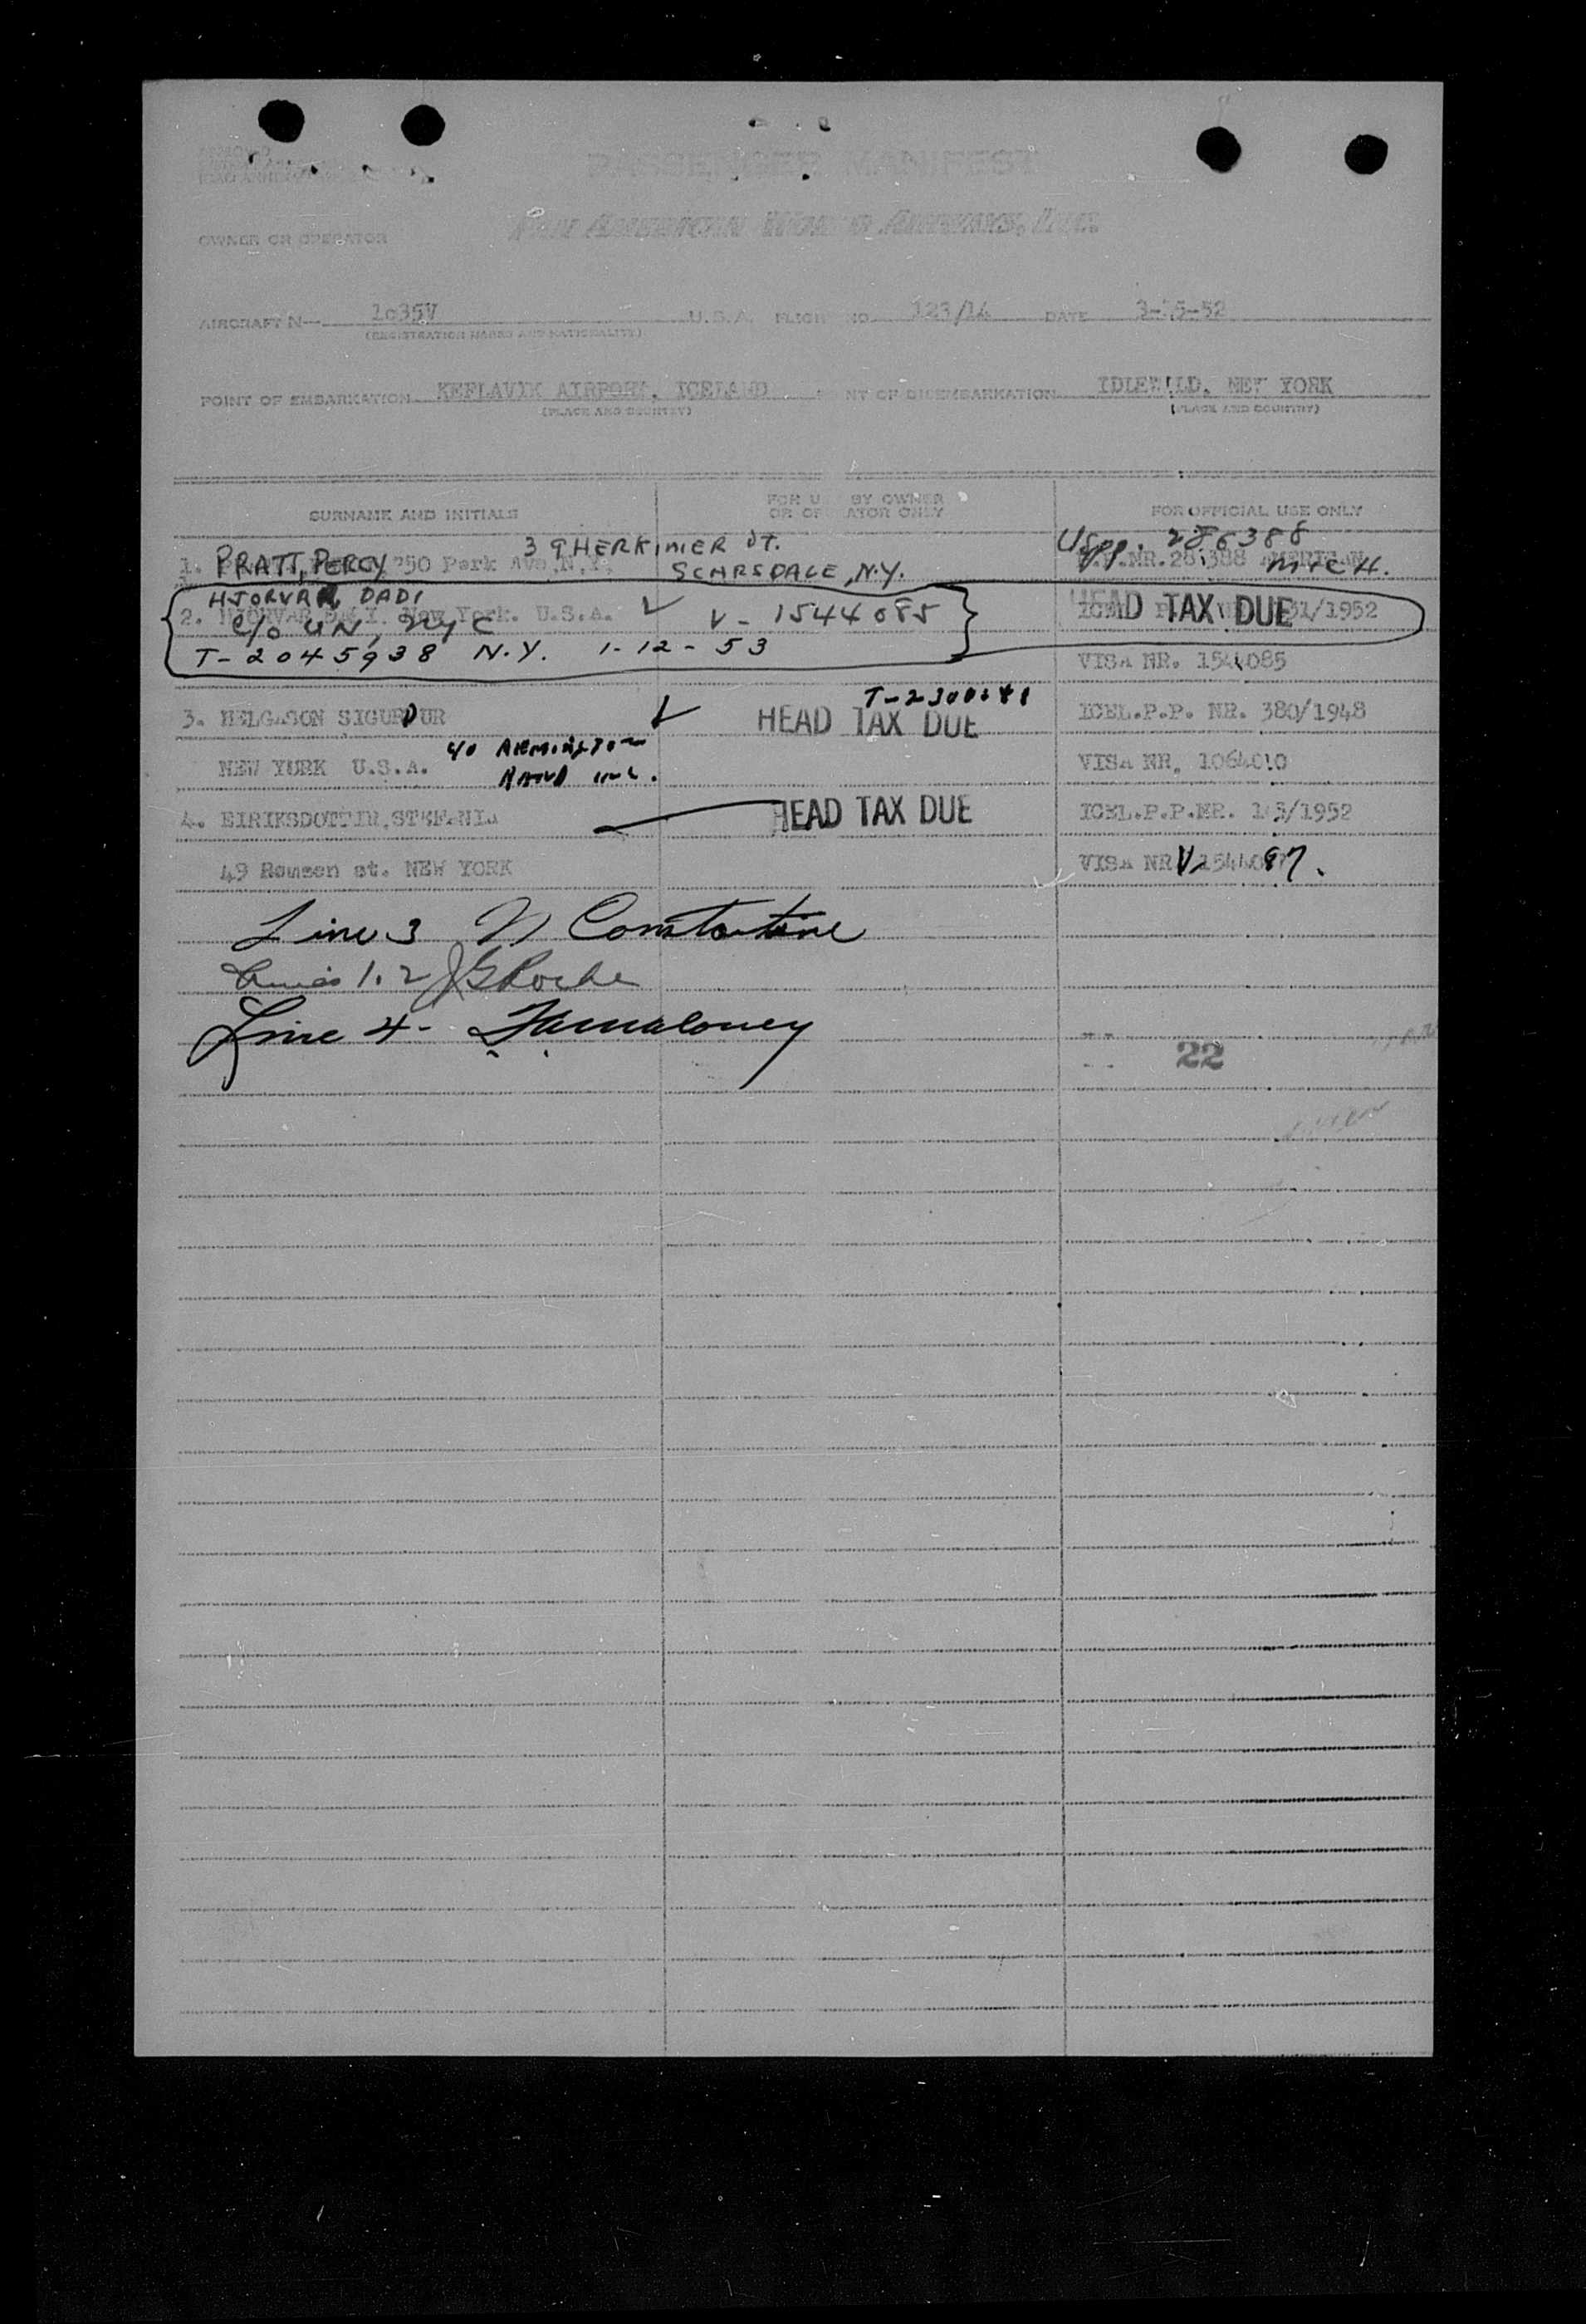 PASSENGER MANIFEST
PAN AMERICAN WORLD AIRWAYS, INC.
OWNER OR OPERATOR
AIRCRAFT N— 1035V U.S.A. FLIGHT NO. 123/14 DATE 3-15-52
(REGISTRATION MARKS AND NATIONALITY)
POINT OF EMBARKATION KEFLAVIK AIRPORT, ICELAND POINT OF DISEMBARKATION IDLEWILD, NEW YORK
(PLACE AND COUNTRY) (PLACE AND COUNTRY)
SURNAME AND INITIALS FOR USE BY OWNER OR OPERATOR ONLY FOR OFFICIAL USE ONLY
39 HERKIMER ST. USpp. 286388
1. PRATT, PERCY 250 Park Ave, N.Y. SCARSDALE, N.Y. P.P.NR. 286388 AMERICAN MICH.
HJORVAR, DADI
2. HJORVAR DADI. New York. U.S.A. V-1544085 HEAD TAX DUE 31/1952
c/o UN, NYC
T-2045938 N.Y. 1-12-53 VISA NR. 1544085
3. HELGASON SIGURDUR HEAD TAX DUE ICEL.P.P. NR. 380/1948
NEW YORK U.S.A. c/o REMINGTON RAND INC. VISA NR. 1064010
4. EIRIKSDOTTIR, STEFANIA HEAD TAX DUE ICEL.P.P.NR. /1952
49 st. NEW YORK VISA NR V
Line 3 N Constantine
Lines 1.2 JG Roche
Line 4- Maloney
22